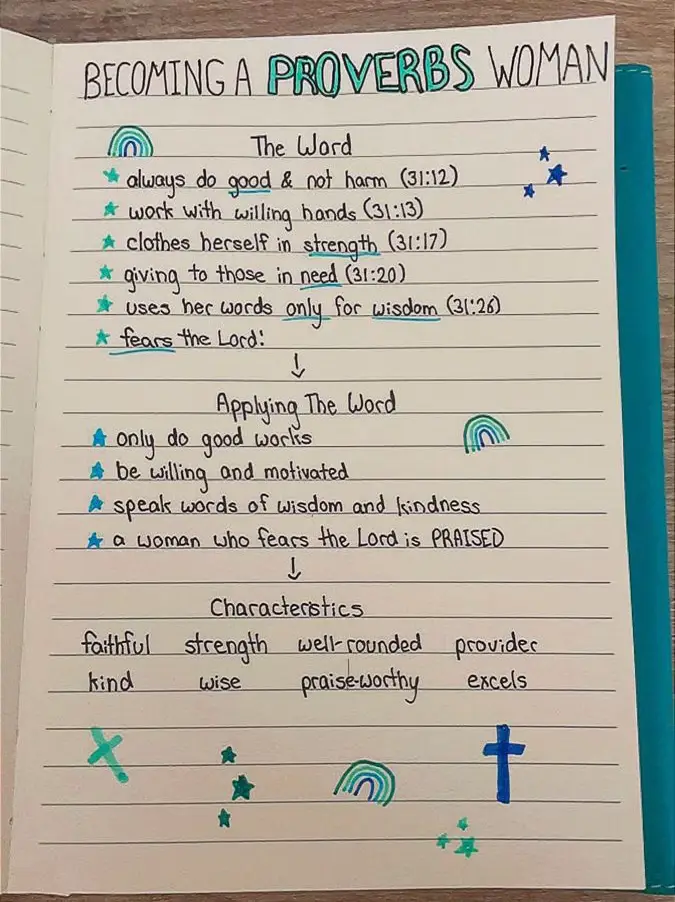 BECOMING A PROVERBS WOMAN
The Word
always do good & not harm (31:12)
work with willing hands (31:13)
clothes herself in strength (31:17)
giving to those in need (31:20)
uses her words only for wisdom (31:26)
fears the Lord!
↓
Applying The Word
only do good works
be willing and motivated
speak words of wisdom and kindness
a woman who fears the Lord is PRAISED
↓
Characterstics
faithful strength well-rounded provider
kind wise praise-worthy excels